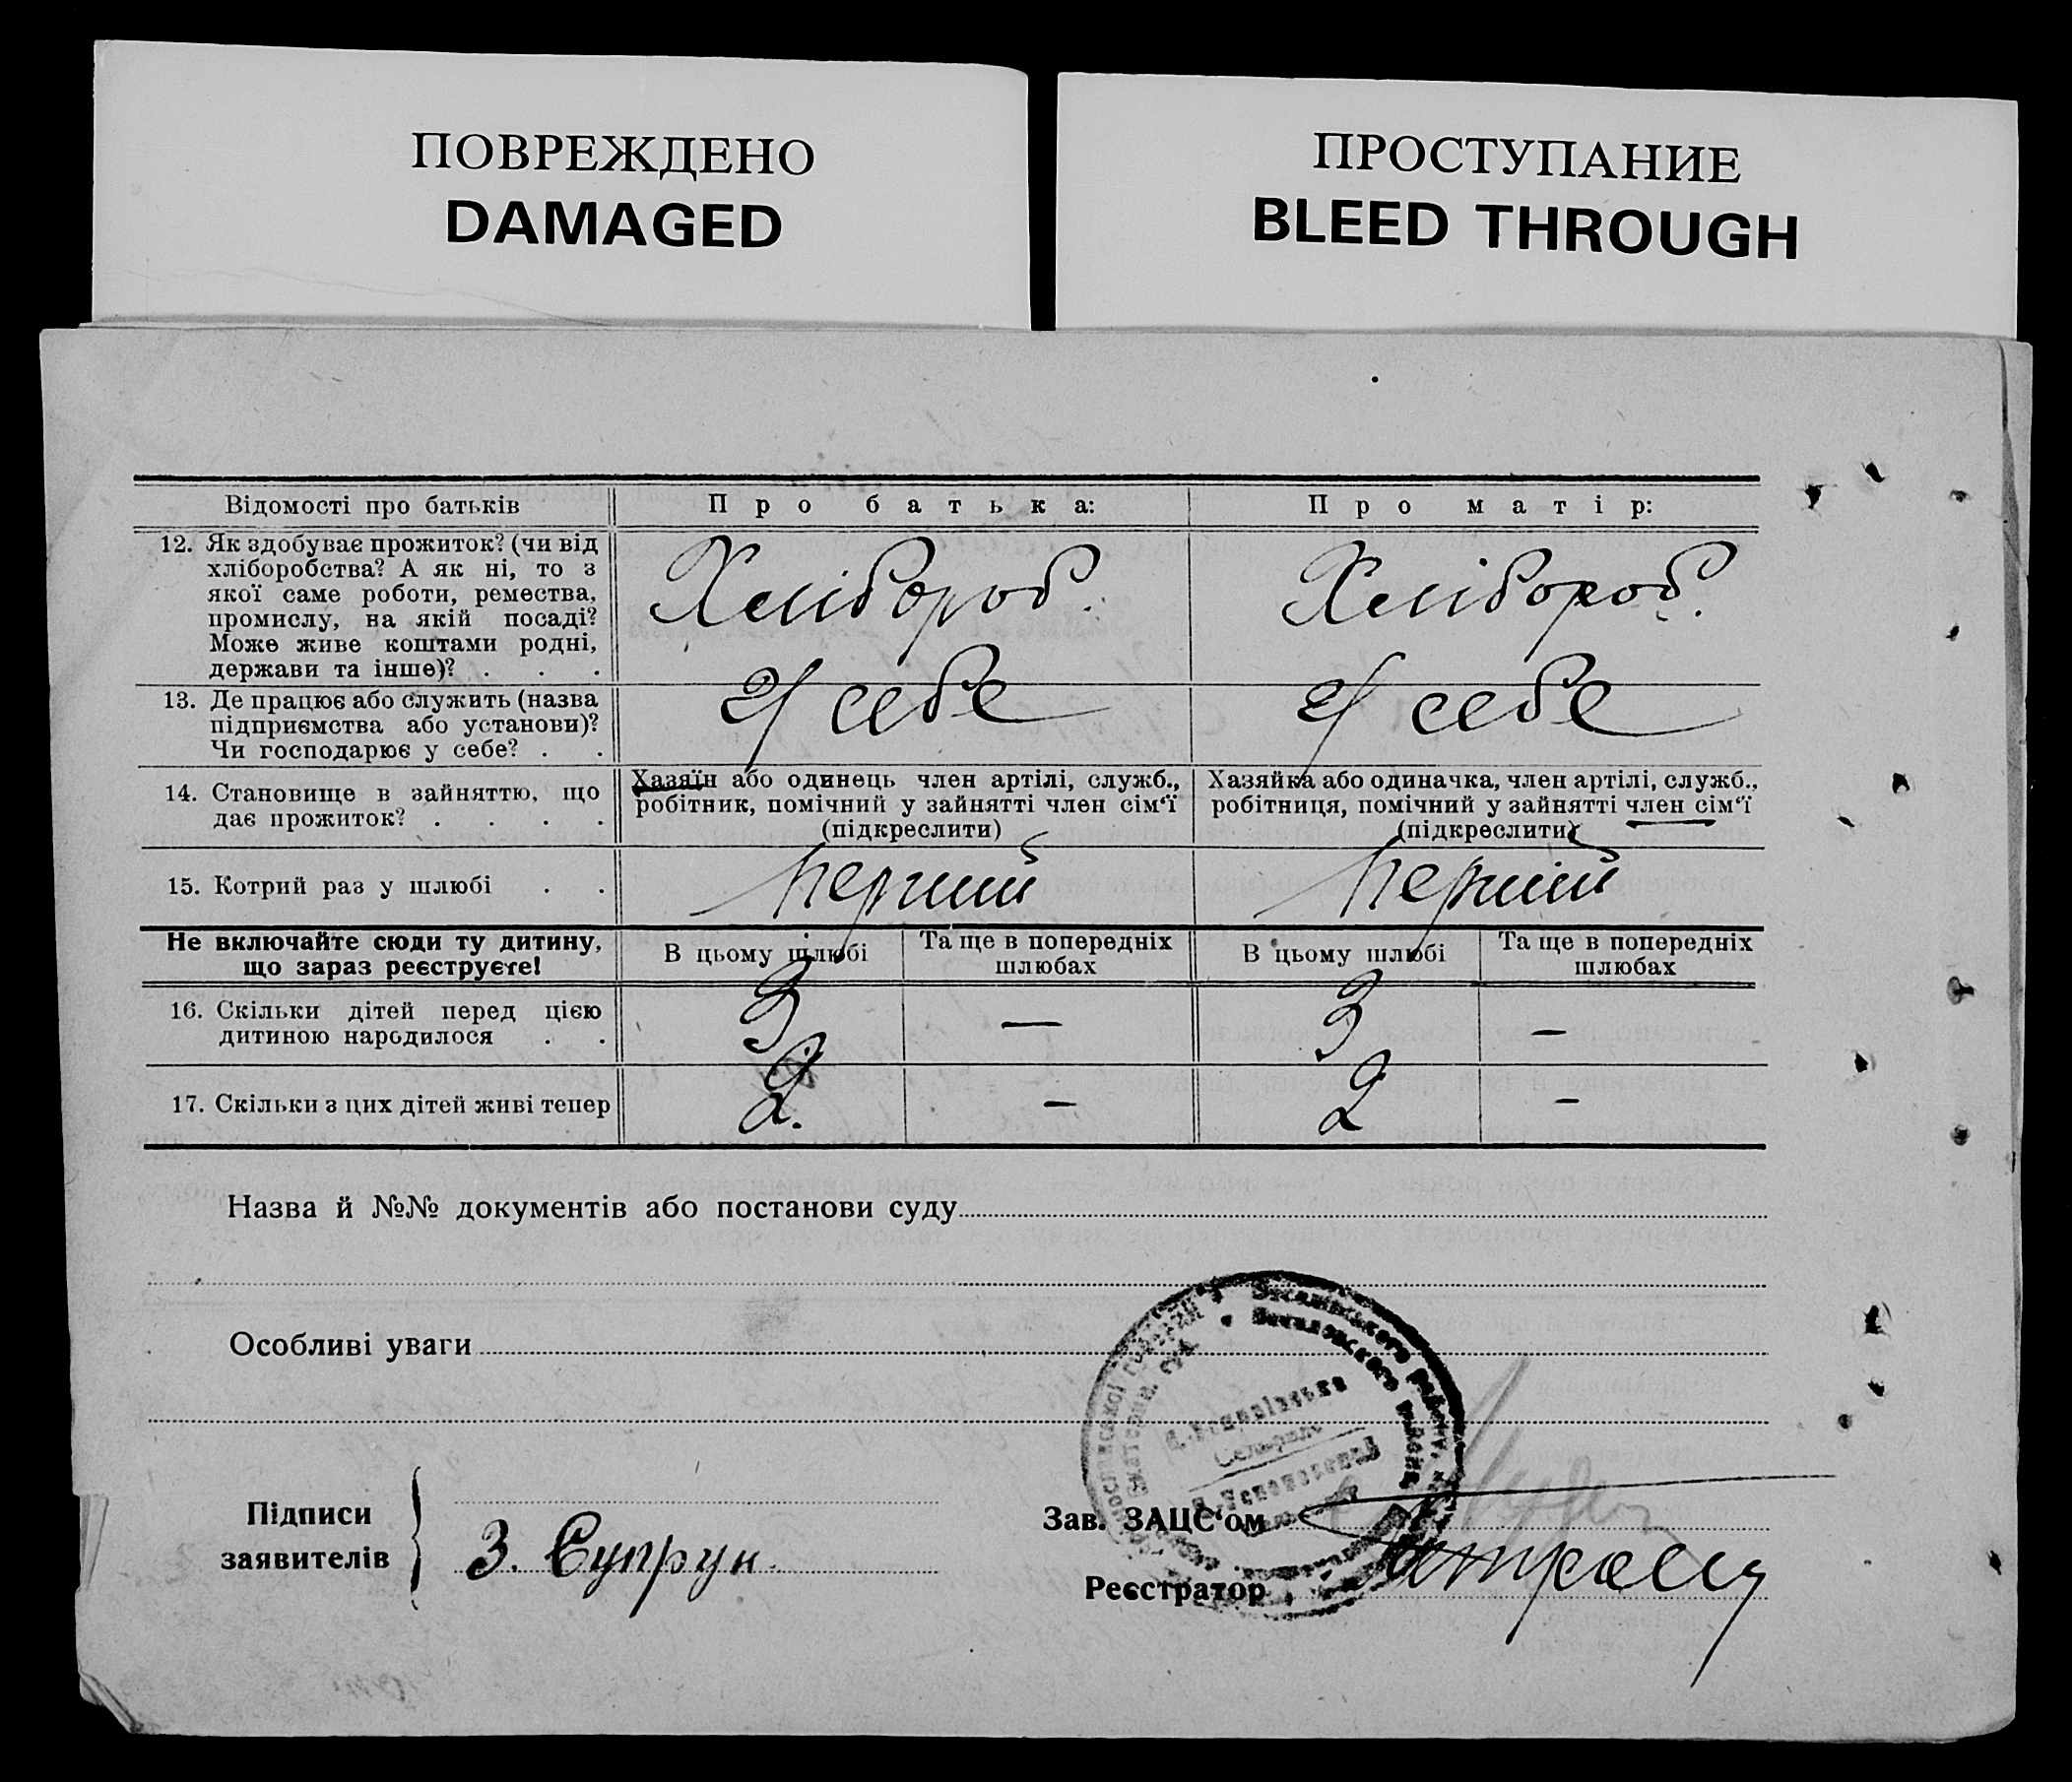 ПОВРЕЖДЕНО
DAMAGED
ПРОСТУПАНИЕ
BLEED THROUGH
Відомості про батьків
Про батька:
Про матір:
12. Як здобуває прожиток? (чи від
хліборобства? А як ні, то з
якої саме роботи, ремества,
промислу, на якій посаді?
Може живе коштами родні,
держави та інше)? . . .
Хлібороб.
Хлібороб.
13. Де працює або служить (назва
підприємства або установи)?
Чи господарює у себе? . .
У себе
У себе
14. Становище в зайняттю, що
дає прожиток? . . . .
Хазяїн або одинець член артілі, служб.,
робітник, помічний у зайнятті член сім'ї
(підкреслити)
Хазяйка або одиначка, член артілі, служб.,
робітниця, помічний у зайнятті член сім'ї
(підкреслити)
15. Котрий раз у шлюбі . .
Перший
Перший
Не включайте сюди ту дитину,
що зараз реєструєте!
В цьому шлюбі
Та ще в попередніх
шлюбах
В цьому шлюбі
Та ще в попередніх
шлюбах
16. Скільки дітей перед цією
дитиною народилося . .
3
—
3
—
17. Скільки з цих дітей живі тепер
2.
—
2
—
Назва й №№ документів або постанови суду
Особливі уваги
Підписи
заявителів
З. Супрун.
Зав. ЗАЦС'ом
Реєстратор